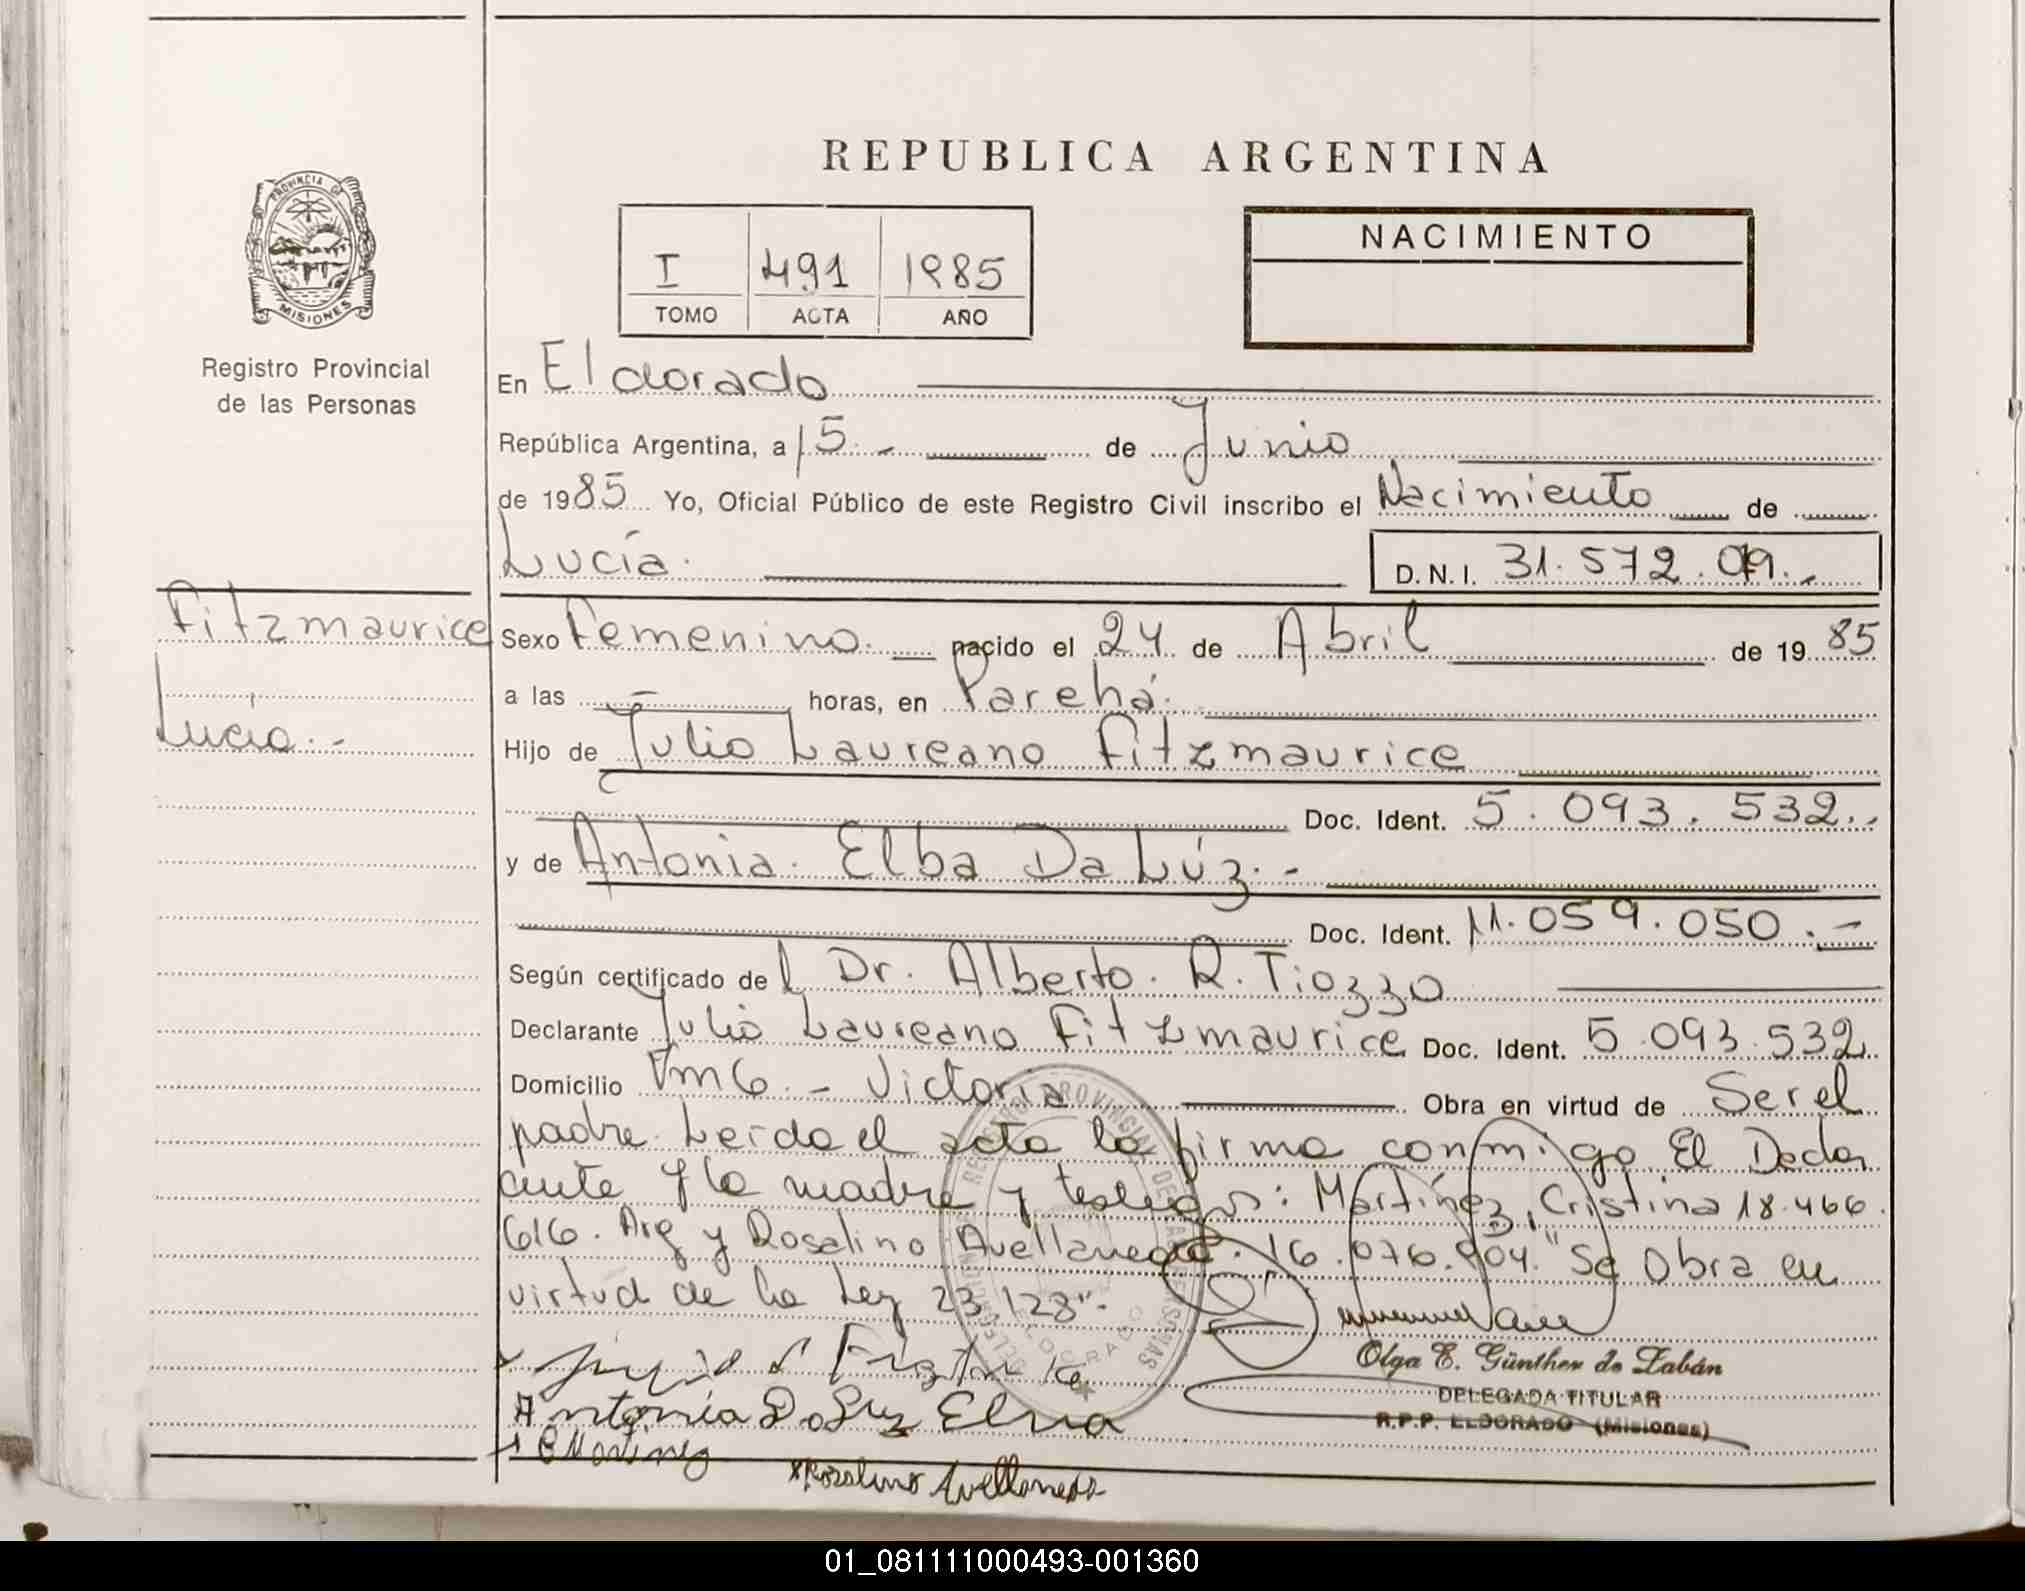 REPUBLICA ARGENTINA
PROVINCIA DE MISIONES
I 491 1985
TOMO ACTA AÑO
NACIMIENTO
Registro Provincial
de las Personas
En Eldorado
República Argentina, a 15.- de Junio
de 1985 Yo, Oficial Público de este Registro Civil inscribo el Nacimiento de
Lucía. D. N. I. 31.572.
Fitzmaurice
Lucía.-
Sexo Femenino. nacido el 24 de Abril de 1985
a las - horas, en Parehá.
Hijo de Julio Laureano Fitzmaurice
Doc. Ident. 5.093.532..
y de Antonia. Elba Da Lúz.-
Doc. Ident. 11.059.050.-
Según certificado del Dr. Alberto. R. Tiozzo
Declarante Julio Laureano Fitzmaurice Doc. Ident. 5.093.532
Domicilio Km 6. - Victoria Obra en virtud de Ser el
padre. Leída el acta la firma conmigo El Declar
ante y la madre y testigos: Martínez, Cristina 18.466.
616. Arg y Rosalino Avellaneda. 16.076.904. "Se Obra en
virtud de la Ley 23.128".
Antonia Da Luz Elva
C Martinez
x Rosalino Avellaneda
Olga E. Günther de Zabán
DELEGADA TITULAR
R.P.P. ELDORADO (Misiones)
REGISTRO PROVINCIAL DE LAS PERSONAS
DELEGACION ELDORADO
01_081111000493-001360